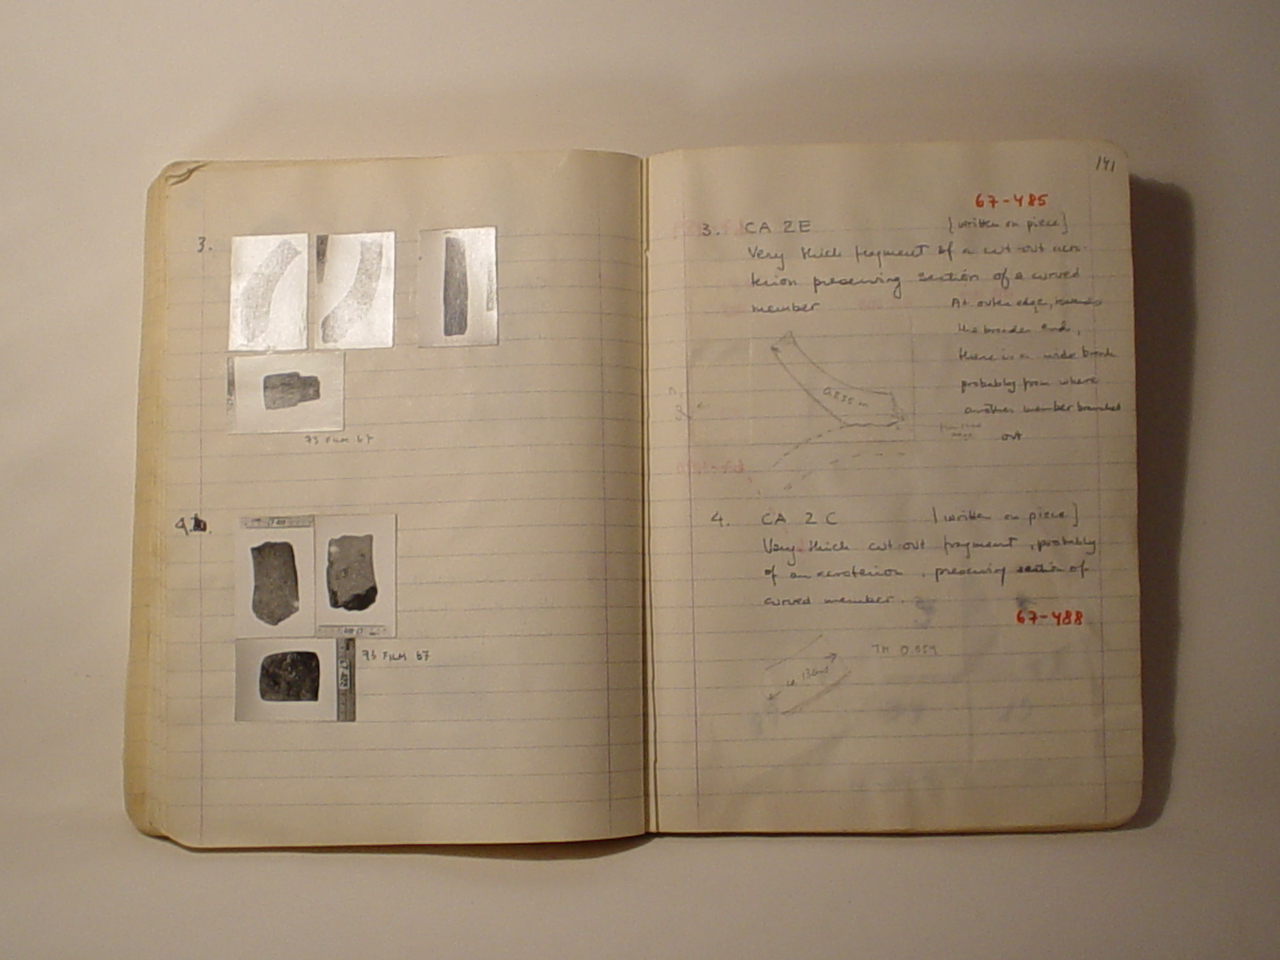 3.
73 FILM 67
4.
76 FILM 67
141
67-485
3. CA 2E [written on piece]
Very thick fragment of a cut out acro-
terion preserving section of a curved
member
At outer edge, towards
the broader end,
there is a wide break
probably from where
another member branched
out
0.235 m
4. CA 2C [written on piece]
Very thick cut out fragment, probably
of an acroterion, preserving section of
curved member.
67-488
TH 0.059